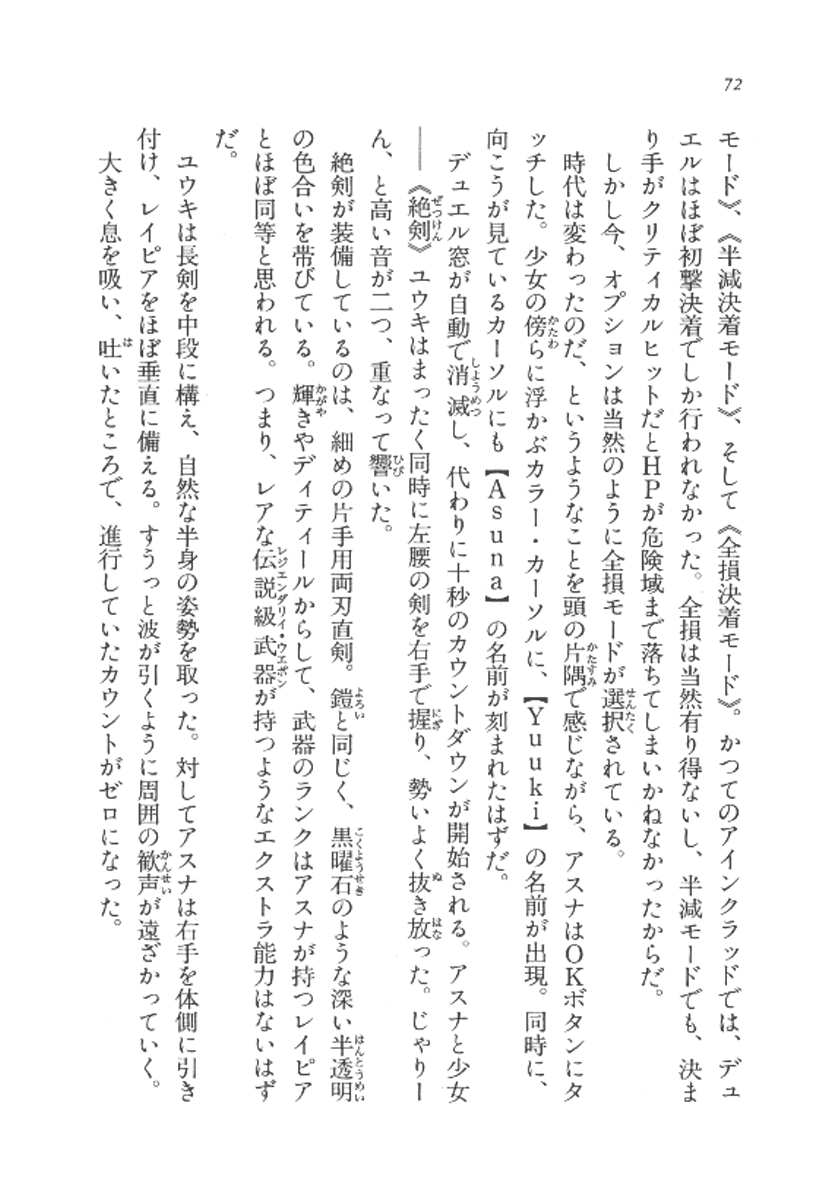 72
モード》、《半減決着モード》、そして《全損決着モード》。かつてのアインクラッドでは、デュ
エルはほぼ初撃決着でしか行われなかった。全損は当然有り得ないし、半減モードでも、決ま
り手がクリティカルヒットだとHPが危険域まで落ちてしまいかねなかったからだ。
しかし今、オプションは当然のように全損モードが選択されている。
時代は変わったのだ、というようなことを頭の片隅で感じながら、アスナはOKボタンにタ
ッチした。少女の傍らに浮かぶカラー・カーソルに、【Yuuki】の名前が出現。同時に、
向こうが見ているカーソルにも【Asuna】の名前が刻まれたはずだ。
デュエル窓が自動で消滅し、代わりに十秒のカウントダウンが開始される。アスナと少女
――《絶剣》ユウキはまったく同時に左腰の剣を右手で握り、勢いよく抜き放った。じゃりー
ん、と高い音が二つ、重なって響いた。
絶剣が装備しているのは、細めの片手用両刃直剣。鎧と同じく、黒曜石のような深い半透明
の色合いを帯びている。輝きやディティールからして、武器のランクはアスナが持つレイピア
とほぼ同等と思われる。つまり、レアな伝説級武器が持つようなエクストラ能力はないはず
だ。
ユウキは長剣を中段に構え、自然な半身の姿勢を取った。対してアスナは右手を体側に引き
付け、レイピアをほぼ垂直に備える。すうっと波が引くように周囲の歓声が遠ざかっていく。
大きく息を吸い、吐いたところで、進行していたカウントがゼロになった。